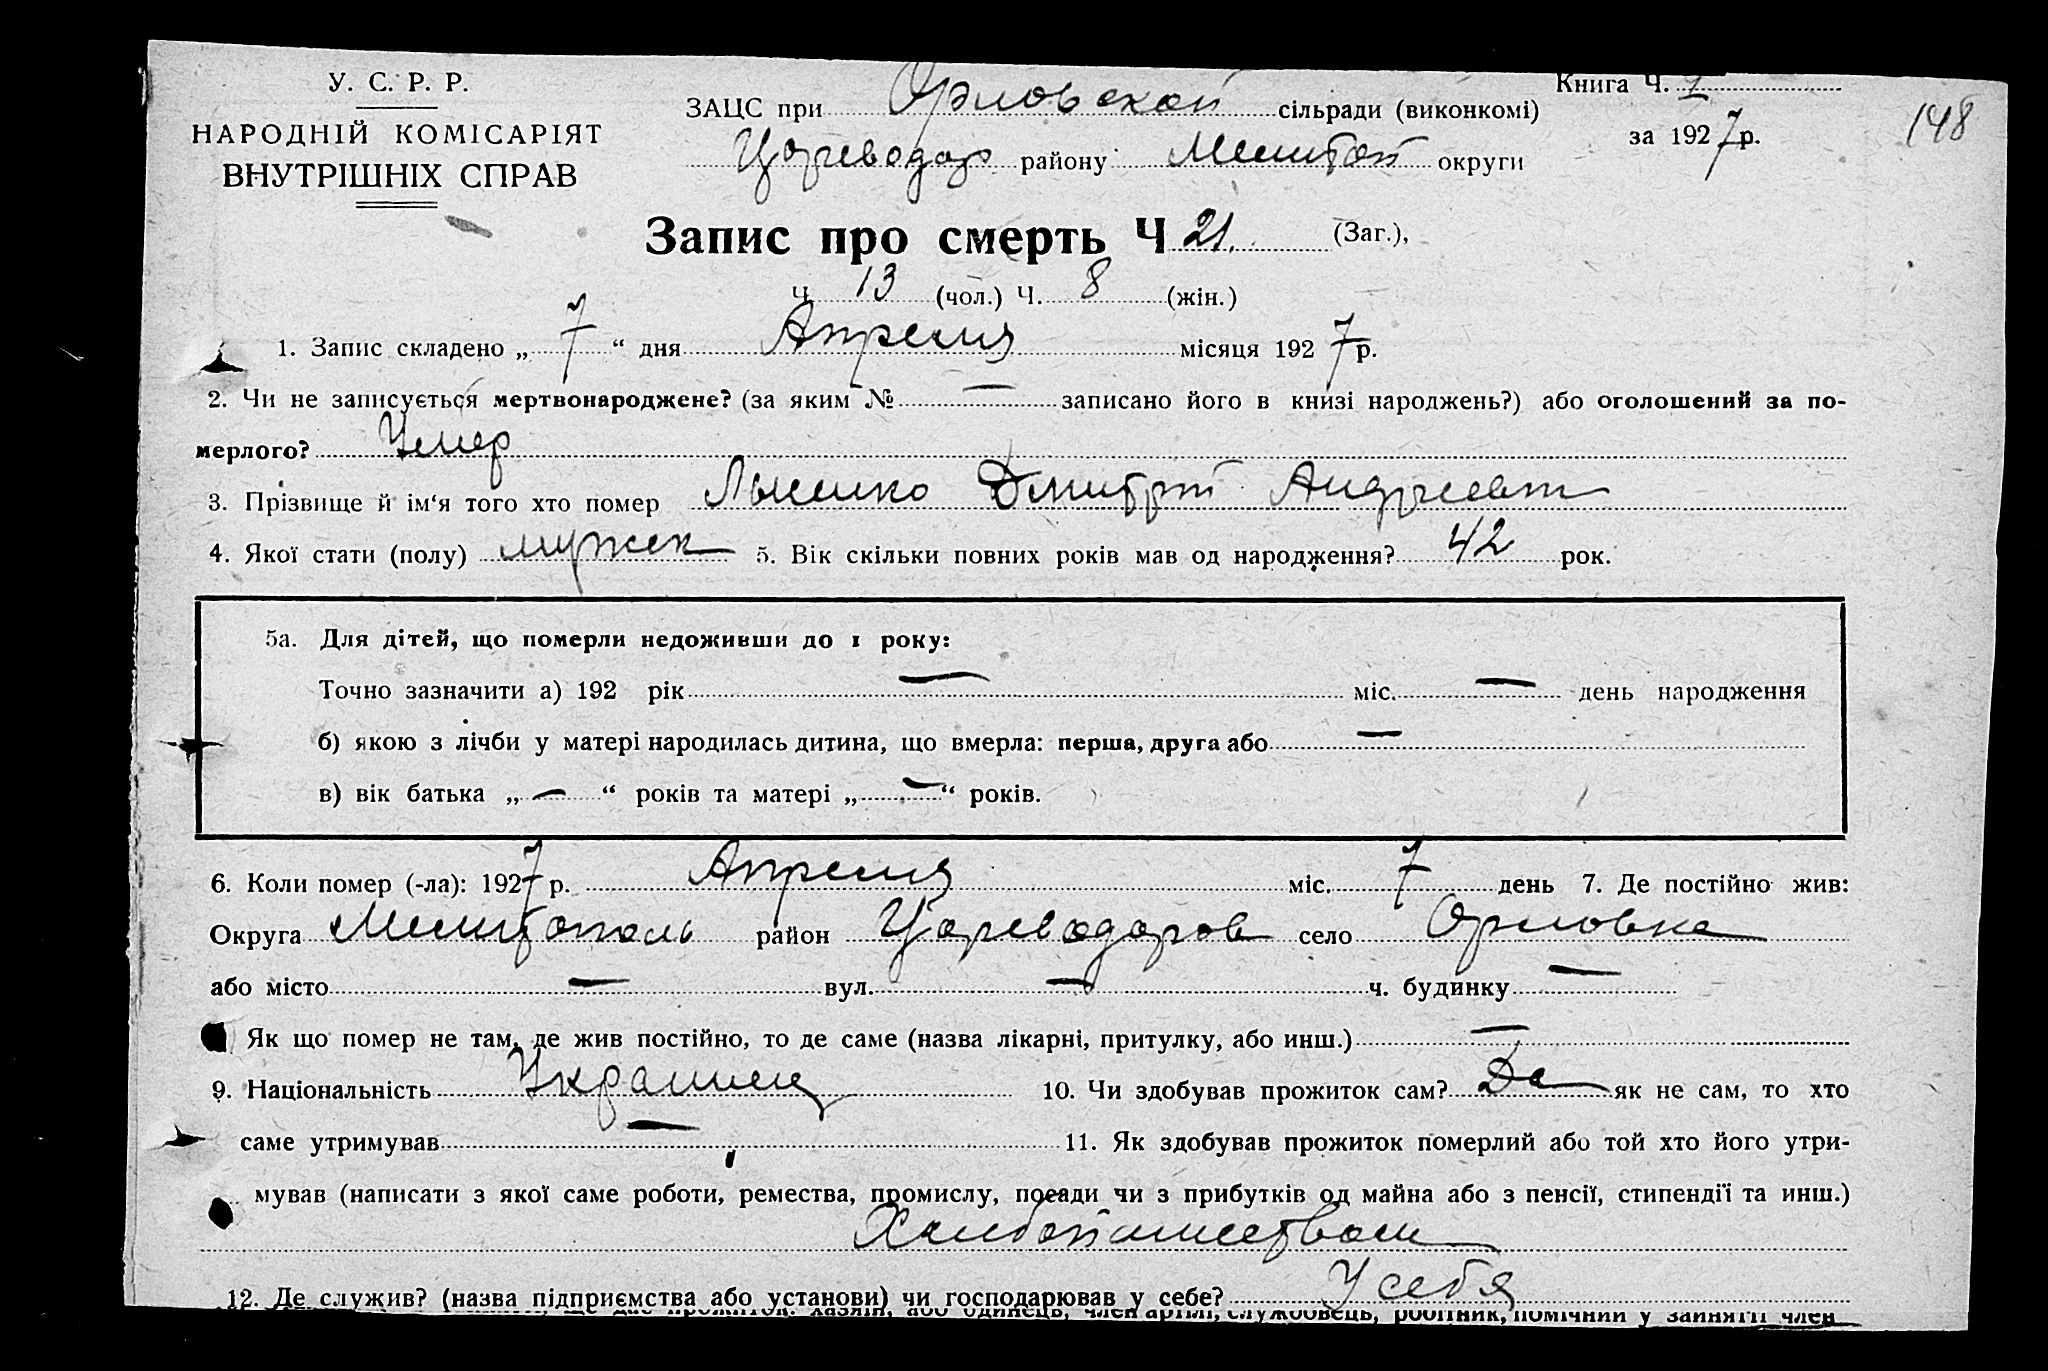 У. С. Р. Р.
НАРОДНІЙ КОМІСАРІЯТ
ВНУТРІШНІХ СПРАВ
ЗАЦС при Орловской сільради (виконкомі)
Цареводар району Мелитоп округи
Книга Ч. 1
за 1927 р.
148
Запис про смерть Ч 21. (Заг.),
Ч. 13 (чол.) Ч. 8 (жін.)
1. Запис складено „ 7 “ дня Апреля місяця 1927 р.
2. Чи не записується мертвонароджене? (за яким № — записано його в книзі народжень?) або оголошений за по-
мерлого? Умер
3. Прізвище й ім‘я того хто помер Лысенко Дмитрий Андреевич
4. Якої стати (полу) мужск 5. Вік скільки повних років мав од народження? 42 рок.
5а. Для дітей, що померли недоживши до 1 року:
Точно зазначити а) 192 рік — міс. — день народження
б) якою з лічби у матері народилась дитина, що вмерла: перша, друга або —
в) вік батька „ — “ років та матері „ — “ років.
6. Коли помер (-ла): 1927 р. Апреля міс. 7 день 7. Де постійно жив:
Округа Мелитополь район Цареводаров село Орловка
або місто — вул. — ч. будинку —
Як що помер не там, де жив постійно, то де саме (назва лікарні, притулку, або инш.) —
9. Національність Украинец 10. Чи здобував прожиток сам? Да як не сам, то хто
саме утримував — 11. Як здобував прожиток померлий або той хто його утри-
мував (написати з якої саме роботи, ремества, промислу, посади чи з прибутків од майна або з пенсії, стипендії та инш.)
Хлебопашеством
12. Де служив? (назва підприємства або установи) чи господарював у себе? У себя
хазяїн, або одинець, член артілі, службовець, робітник, помічний у занятті член